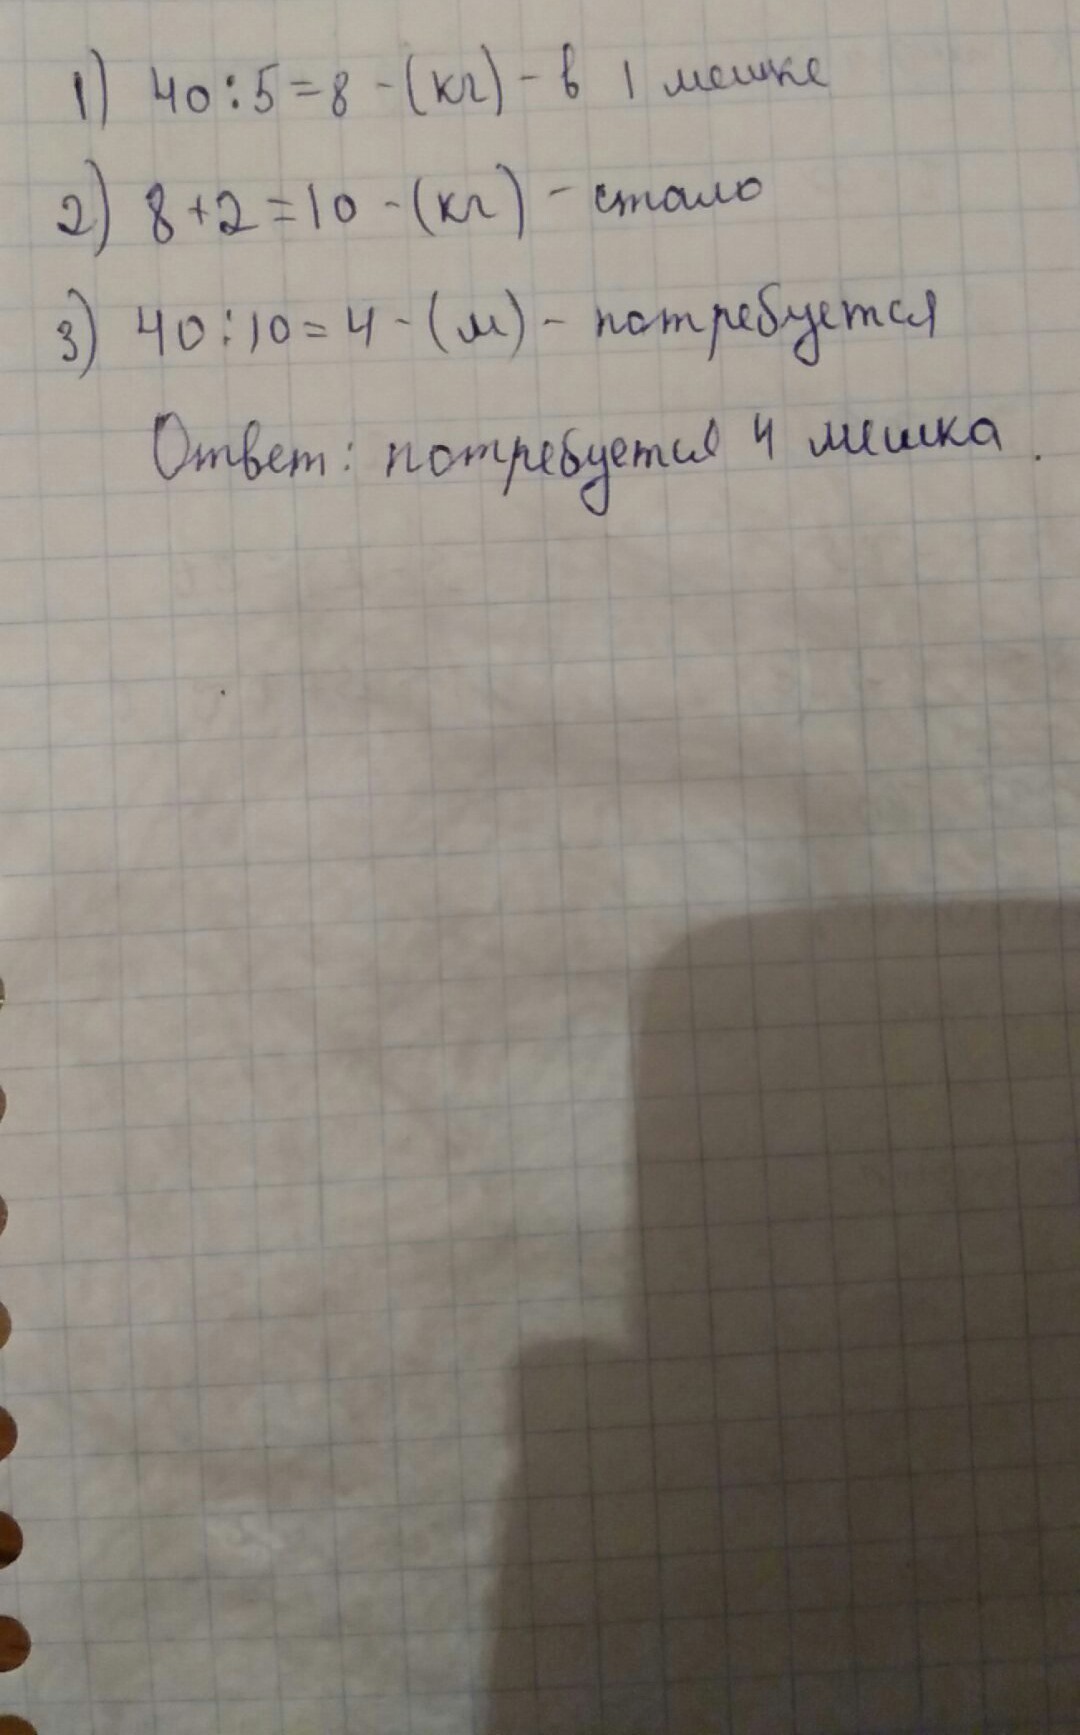 1) 40:5=8 -(кг)- в 1 мешке
2) 8+2=10 -(кг) - стало
3) 40:10=4 -(м) - потребуется
Ответ: потребуется 4 мешка.